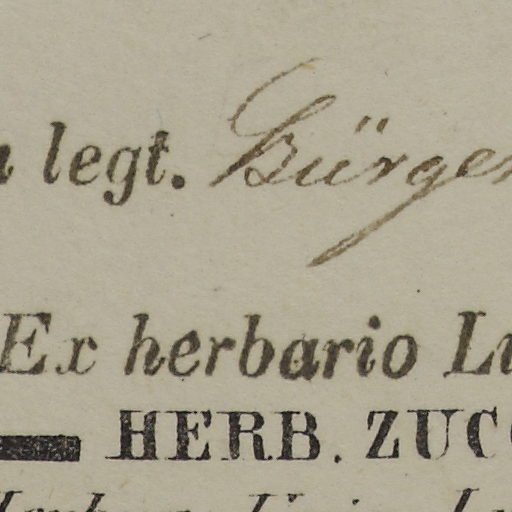 legt. Bürger
Ex herbario
HERB.